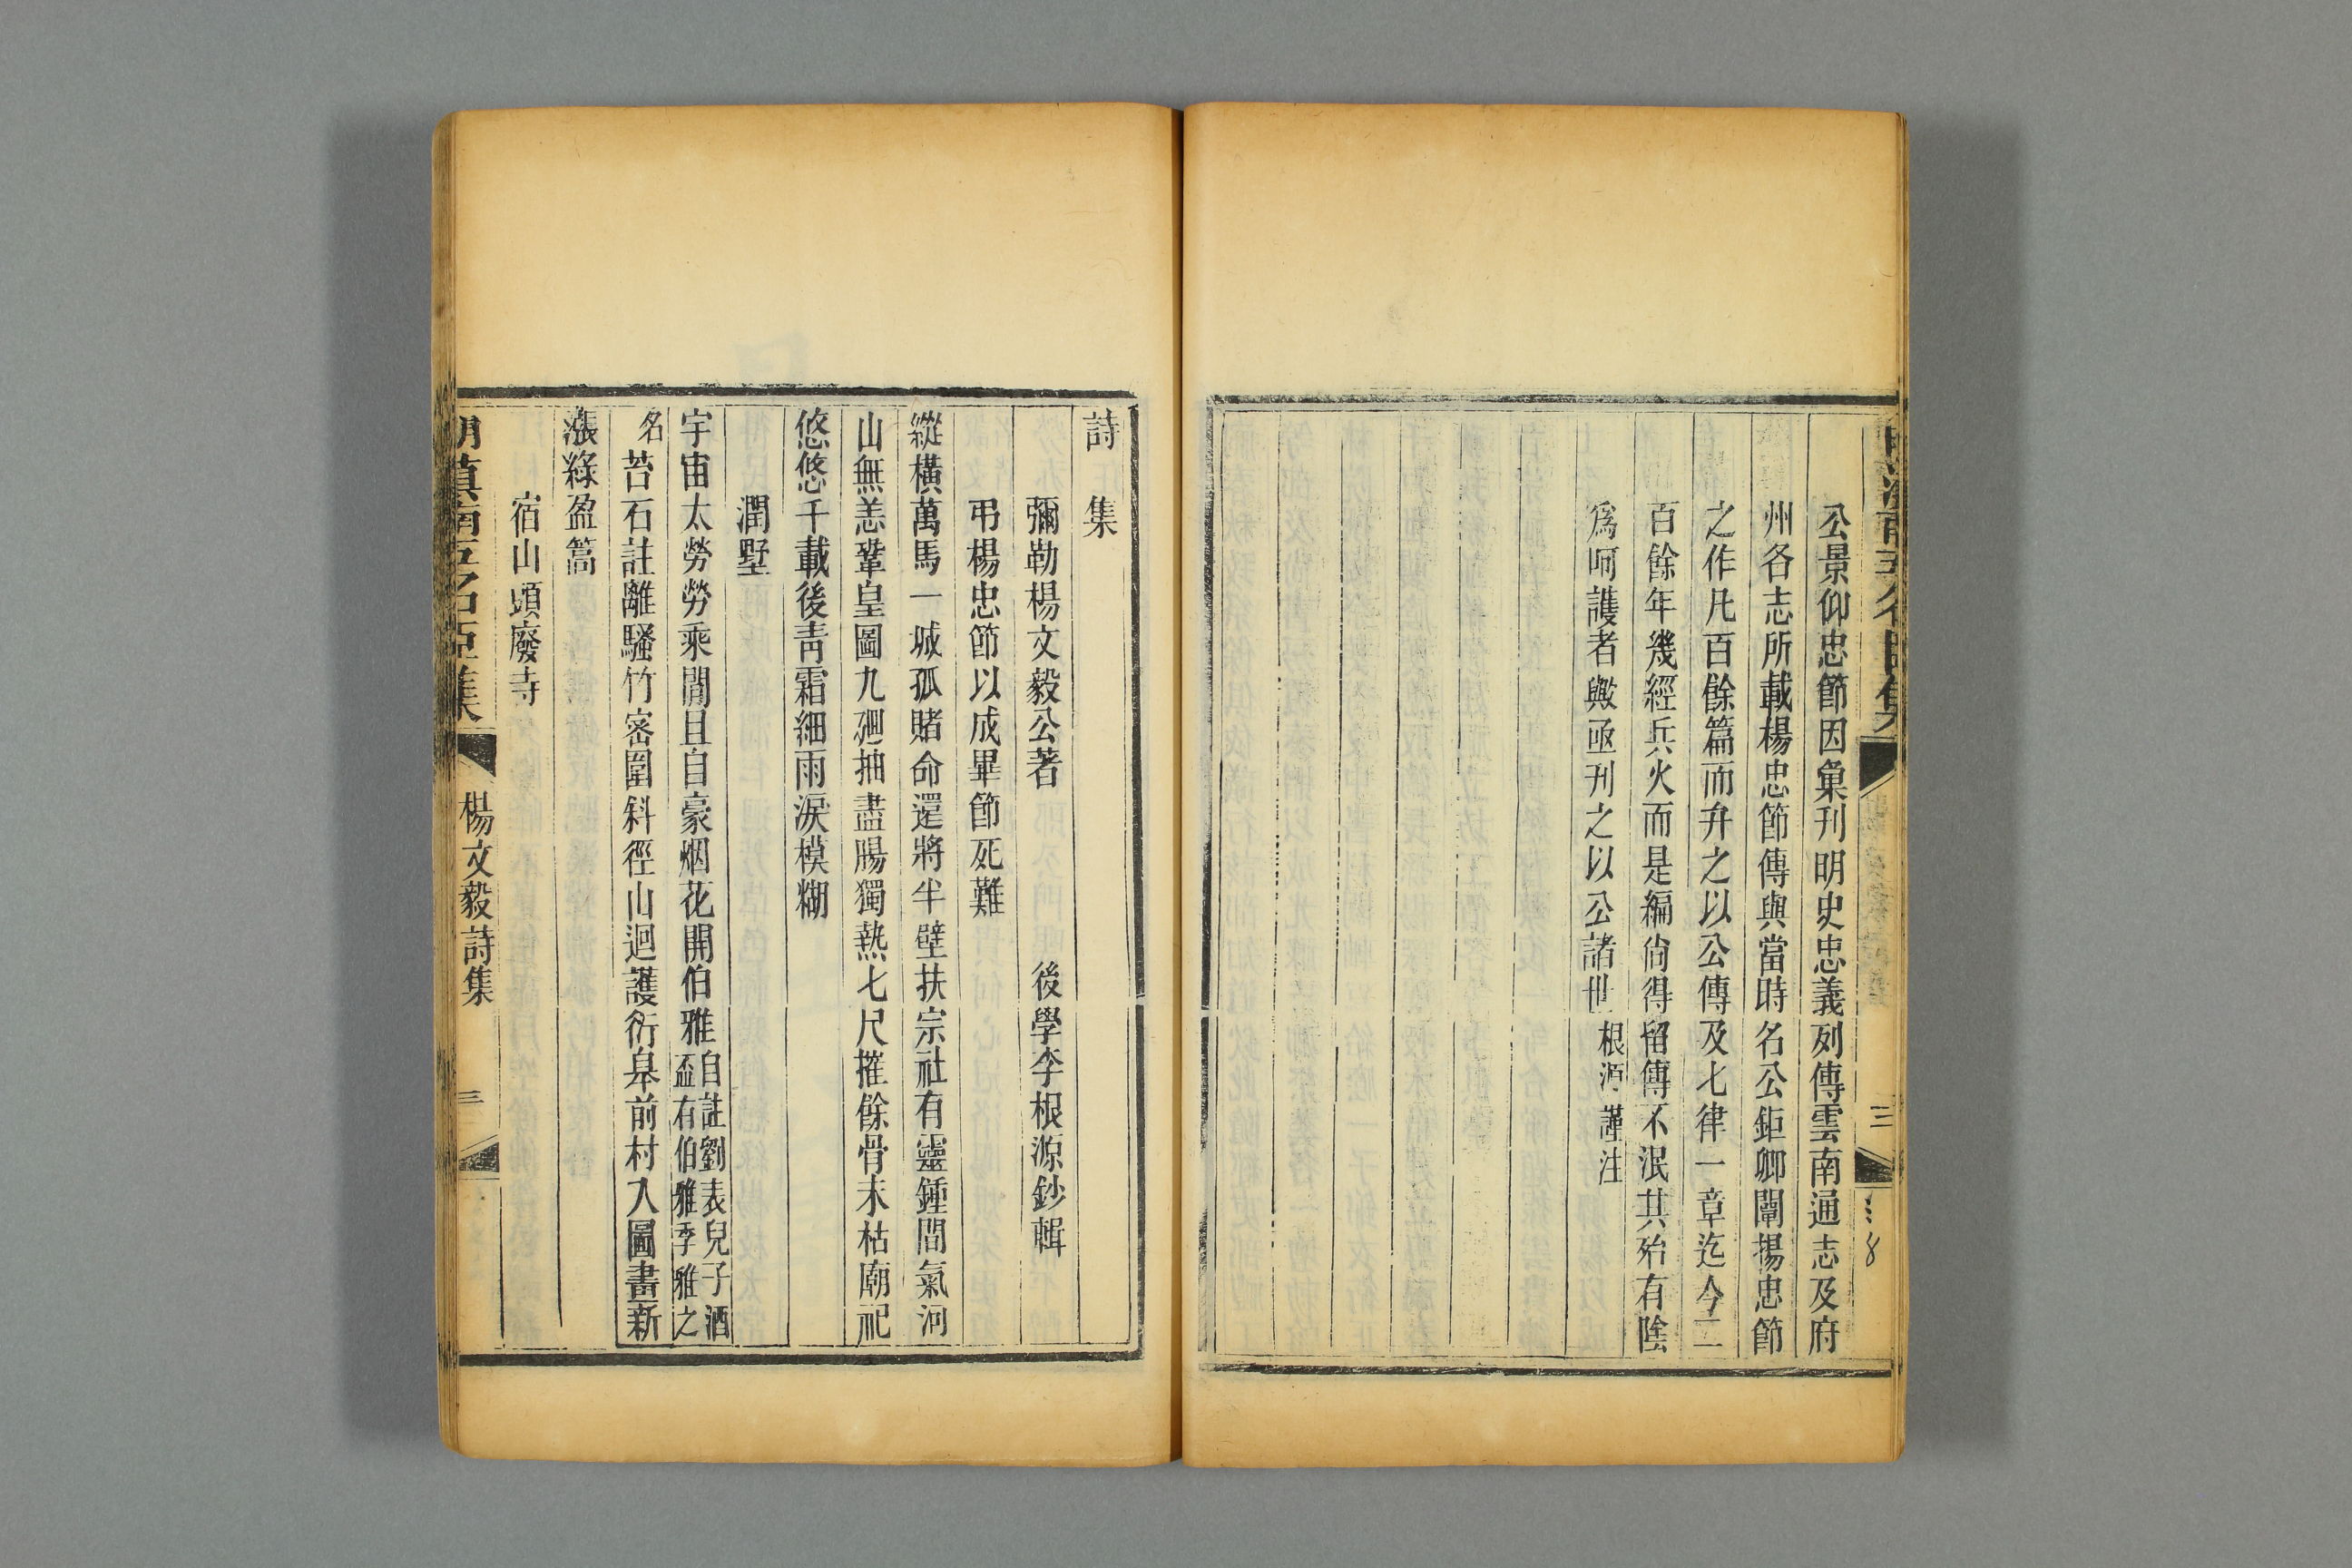 公景仰忠節因彙刊明史忠義列傳雲南通志及府
州各志所載楊忠節傳與當時名公鉅卿闡揚忠節
之作凡百餘篇而弁之以公傳及七律一章迄今二
百餘年幾經兵火而是編尙得留傳不泯其殆有陰
爲呵護者歟亟刊之以公諸世 根源謹注
詩集
彌勒楊文毅公著 後學李根源鈔輯
弔楊忠節以成畢節死難
縱橫萬馬一城孤賭命還將半壁扶宗社有靈鍾間氣河
山無恙鞏皇圖九廻抽盡腸獨熱七尺摧餘骨未枯廟祀
悠悠千載後靑霜細雨淚模糊
潤墅
宇宙太勞勞乘閒且自豪烟花開伯雅自註劉表兒子酒
盃有伯雅季雅之
名苔石註離騷竹密圍斜徑山迴護衍皋前村入圖畫新
漲綠盈篙
宿山頭廢寺
明滇南五名臣集 楊文毅詩集 三